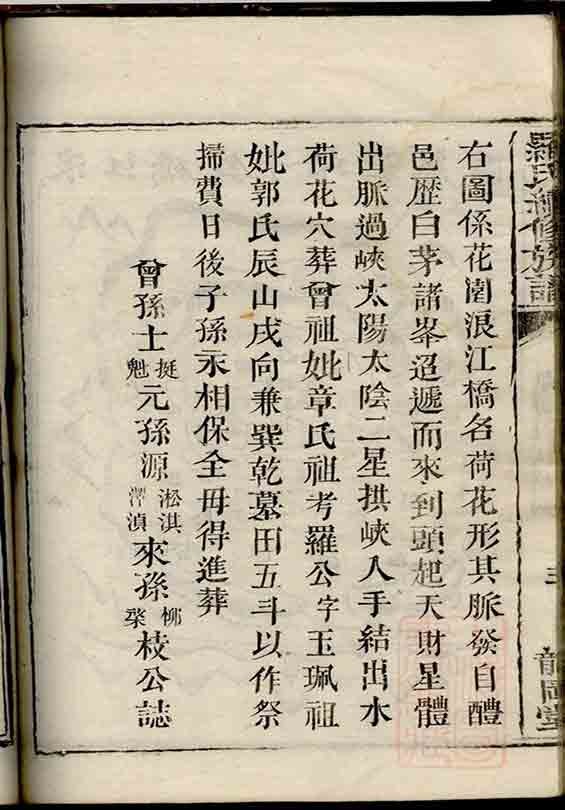 羅氏續修族譜
右圖係花園浪江橋名荷花形其脈發自醴
邑歷白茅諸峯迢遞而來到頭起天財星體
出脈過峽太陽太陰二星拱峽入手結出水
荷花穴葬曾祖妣章氏祖考羅公字玉珮祖
妣郭氏辰山戌向兼巽乾墓田五斗以作祭
掃費日後子孫永相保全毋得進葬
曾孫士挺魁元孫源淞淇澤滇來孫柳桀枝公誌